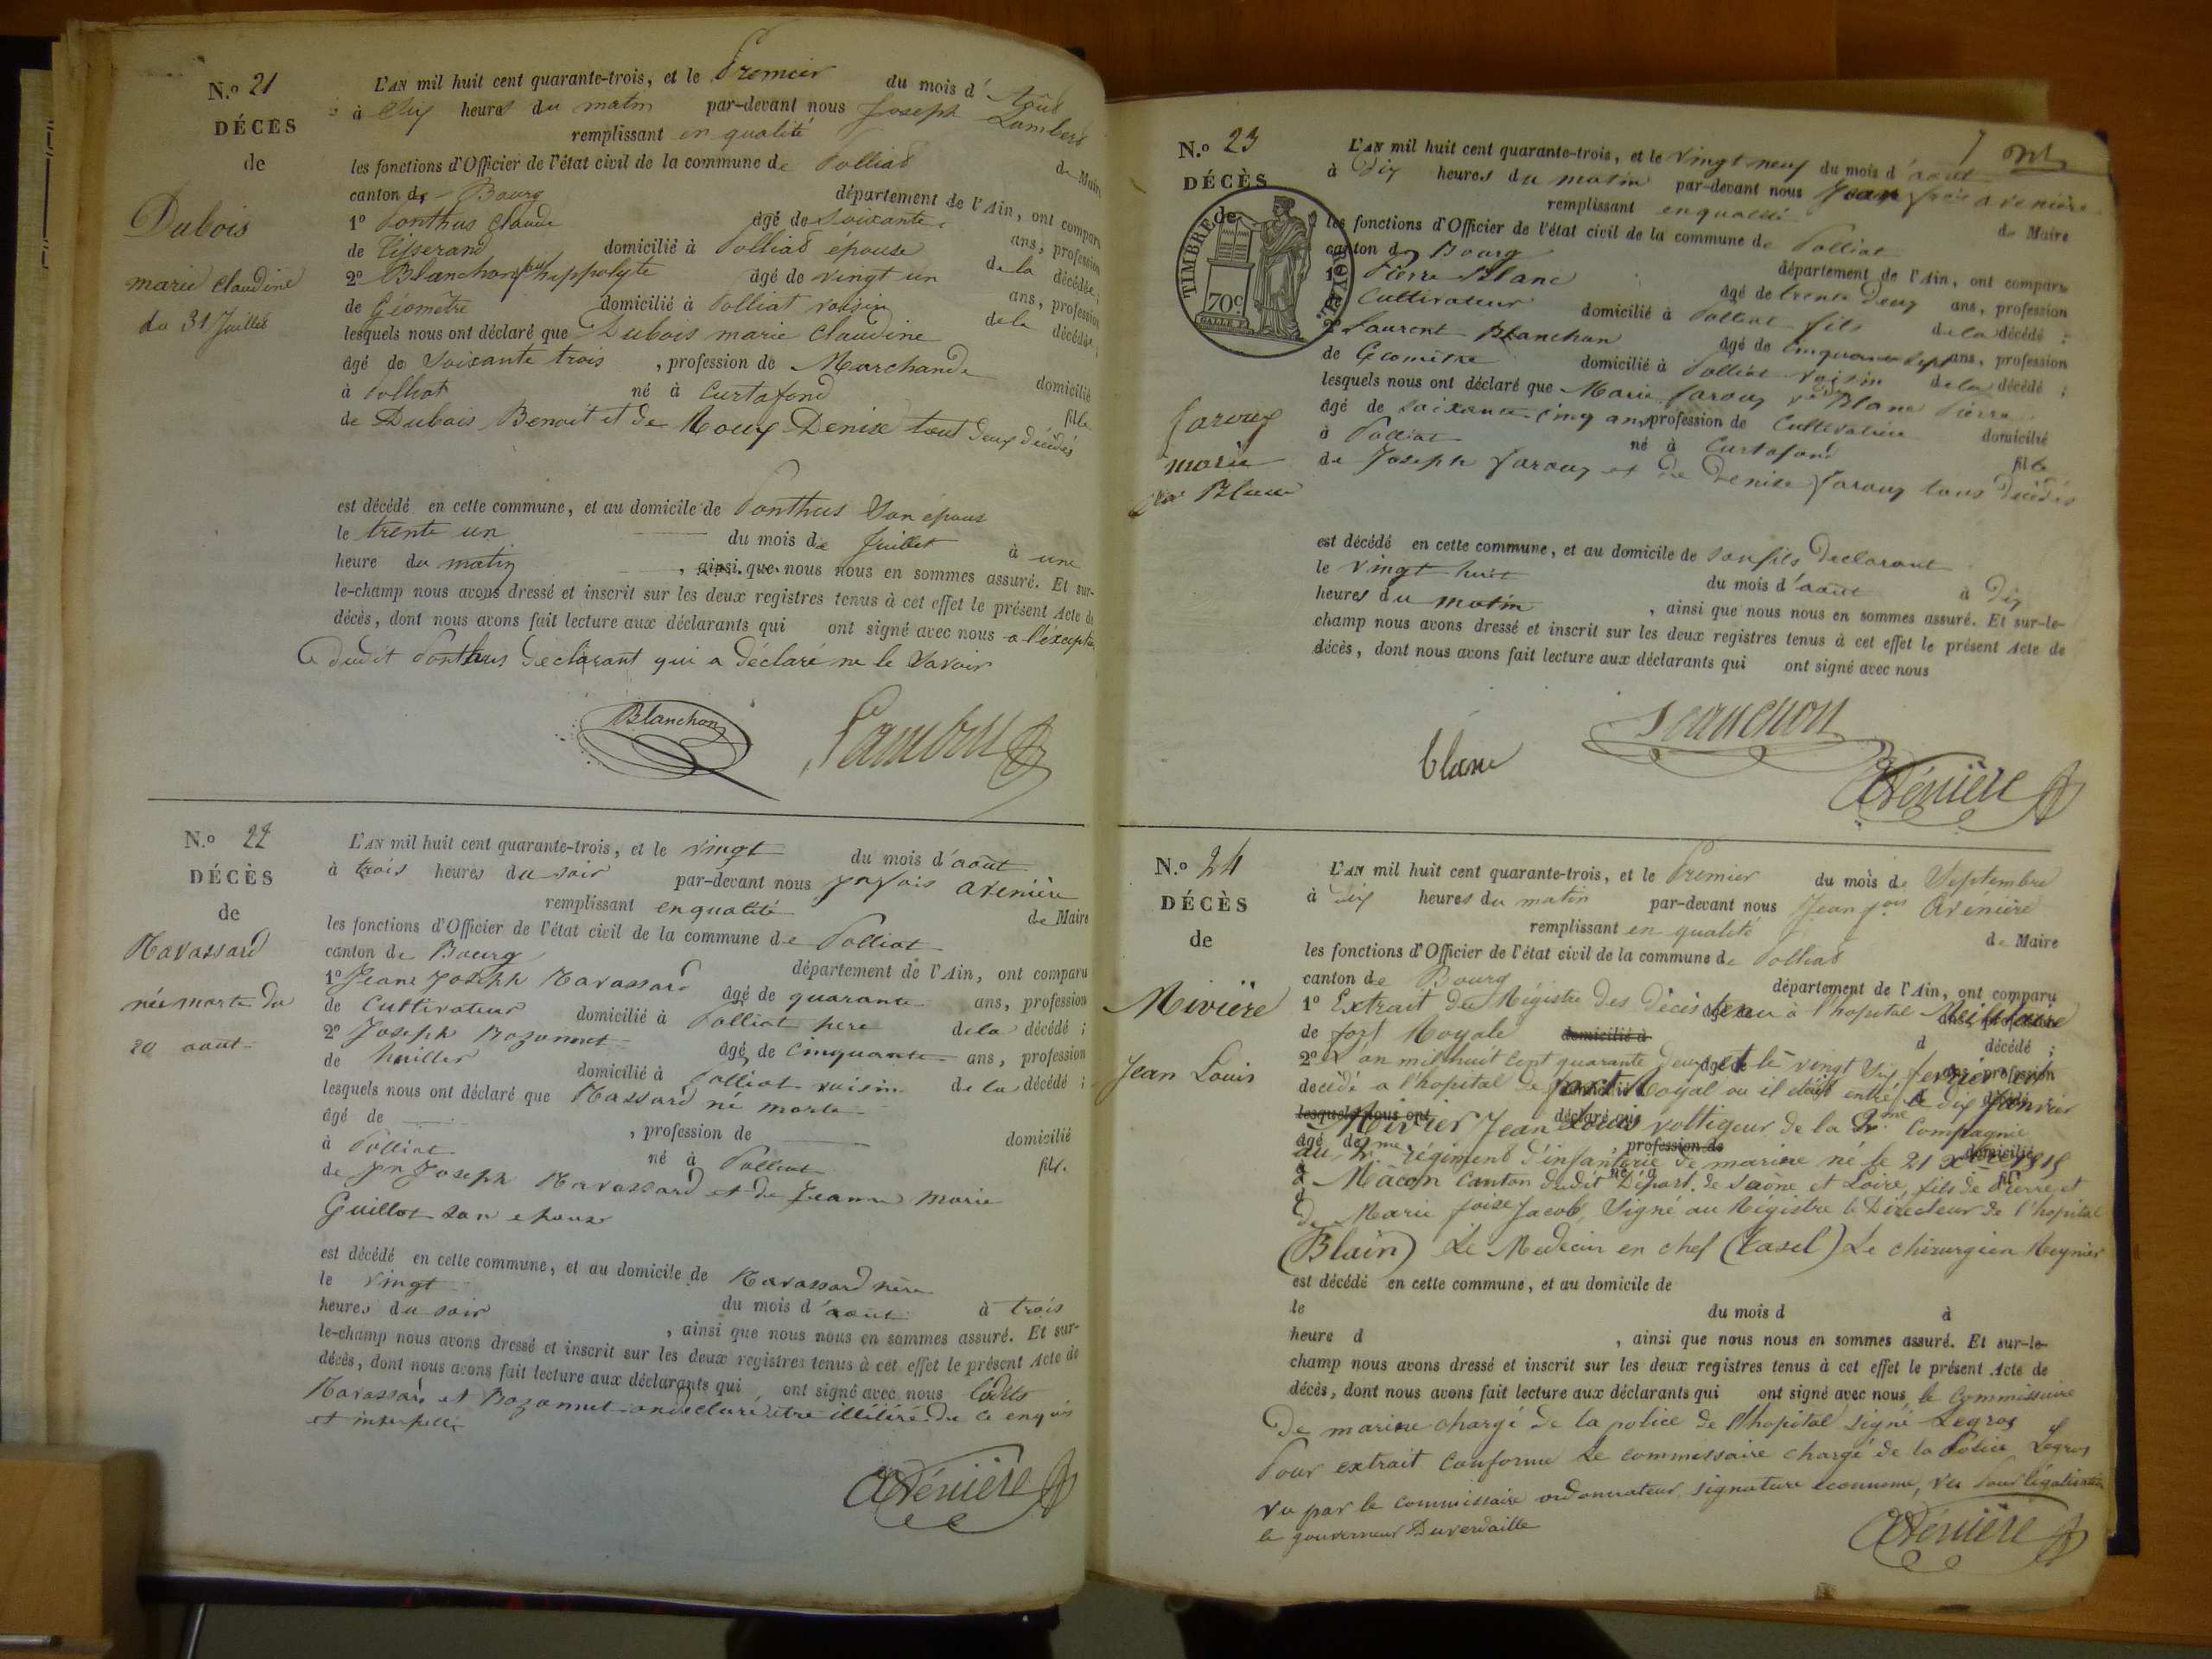 N.º 21
DÉCES
de
Dubois
marie Claudine
du 31 Juillet
L'AN mil huit cent quarante-trois, et le Premier du mois d'Aout
à dix heures du matin par-devant nous Joseph Lambert
remplissant en qualité de Maire
les fonctions d'Officier de l'état civil de la commune de Polliat
canton de Bourg département de l'Ain, ont comparu
1º Ponthus Claude âgé de Soixante ans, profession
de Tisserand domicilié à Polliat époux de la décédée;
2º Blanchon hippolyte âgé de vingt un ans, profession
de Géomètre domicilié à Polliat voisin de la décédée;
lesquels nous ont déclaré que Dubois marie Claudine
âgé de Soixante trois , profession de Marchande domicilié
à Polliat né à Curtafond fille
de Dubois Benoit et de Rouy Denise tout deux décédés
est décédé en cette commune, et au domicile de Ponthus Son époux
le trente un du mois de Juillet à une
heure du matin , ainsi que nous nous en sommes assuré. Et sur-
le-champ nous avons dressé et inscrit sur les deux registres tenus à cet effet le présent Acte de
décès, dont nous avons fait lecture aux déclarants qui ont signé avec nous a l'exception
dudit Ponthus declarant qui a déclaré ne le Savoir
Blanchon Lambert
N.º 22
DÉCÈS
de
Ravassard
née morte du
20 aout
L'AN mil huit cent quarante-trois, et le vingt du mois d'aout
à trois heures du soir par-devant nous Jn fois avenière
remplissant en qualité de Maire
les fonctions d'Officier de l'état civil de la commune de Polliat
canton de Bourg département de l'Ain, ont comparu
1º Jean Joseph Ravassard âgé de quarante ans, profession
de Cultivateur domicilié à Polliat pere de la décédé;
2º Joseph Bozonnet âgé de cinquante ans, profession
de huillier domicilié à Polliat voisin de la décédé;
lesquels nous ont déclaré que Rassard né morte
âgé de , profession de domicilié
à Polliat né à Polliat fil.
de Jn Joseph Ravassard et de Jeanne Marie
Guillot son epouse
est décédé en cette commune, et au domicile de Ravassard père
le vingt du mois d'aout à trois
heures du soir , ainsi que nous nous en sommes assuré. Et sur-
le-champ nous avons dressé et inscrit sur les deux registres tenus à cet effet le présent Acte de
décès, dont nous avons fait lecture aux déclarants qui ont signé avec nous lesdits
Ravassard et Bozonnet ont declaré etre illitéré de ce enquis
et interpellé
Avénière
N.º 23
DÉCÈS
de
TIMBRE ROYAL
70c
Farouy
marie
L'AN mil huit cent quarante-trois, et le vingt neuf du mois d'aout
à dix heures du matin par-devant nous Jean fois avenière
remplissant en qualité de Maire
les fonctions d'Officier de l'état civil de la commune de Polliat
canton de Bourg département de l'Ain, ont comparu
1º Pierre Blanc âgé de trente deux ans, profession
Cultivateur domicilié à Polliat fils de la décédé;
2º Laurent Blanchon âgé de cinquante sept ans, profession
de Géomètre domicilié à Polliat voisin de la décédé;
lesquels nous ont déclaré que Marie Farouy Blanc Pierre
âgé de soixante cinq ans profession de Cultivatrice domicilié
à Polliat né à Curtafond fille
de Joseph Farouy et de Denise Farouy tous décédés
est décédé en cette commune, et au domicile de son fils declarant
le vingt huit du mois d'aout à dix
heures du matin , ainsi que nous nous en sommes assuré. Et sur-le-
champ nous avons dressé et inscrit sur les deux registres tenus à cet effet le présent Acte de
décès, dont nous avons fait lecture aux déclarants qui ont signé avec nous
blanc Blanchon
Avénière
N.º 24
DÉCÈS
de
Rivière
Jean Louis
L'AN mil huit cent quarante-trois, et le Premier du mois de Septembre
à dix heures du matin par-devant nous Jean fois Avenière
remplissant en qualité de Maire
les fonctions d'Officier de l'état civil de la commune de Polliat
canton de Bourg département de l'Ain, ont comparu
1º Extrait du Régistre des décès tenu à l'hopital Militaire
de fort Royale domicilié à d décédé;
2º L'an mil huit cent quarante deux et le vingt Six fevrier est
decédé a l'hopital de fort Royal ou il était entré le dix Janvier
Rivier Jean Louis voltigeur de la compagnie
du régiment d'infanterie de marine né le 21
à Mâcon Canton dudit Départ. de Saone et Loire, fils de Pierre et
de Marie foise Jacob, Signé au Régistre le Directeur de l'hopital
(Blain) Le Medecin en chef Le chirurgien Reynier
est décédé en cette commune, et au domicile de
le du mois d à
heure d , ainsi que nous nous en sommes assuré. Et sur-le-
champ nous avons dressé et inscrit sur les deux registres tenus à cet effet le présent Acte de
décès, dont nous avons fait lecture aux déclarants qui ont signé avec nous le Commissaire
De marine chargé de la police de l'hopital signé Legros
Pour extrait Conforme Le commissaire chargé de la Police Legros
Vu par le commissaire ordonnateur, signature econnome, vu Pour légalisation
le gouverneur Duverdaille
Avénière